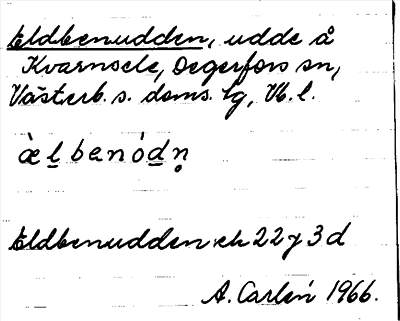 Eldbenudden, udde å
Kvarnsele, Degerfors sn,
Västerb. s. doms. lg, Vb. l.
æ̀l̲benòd̲n̥
Eldbenudden ek 22 y 3 d
A. Carlén 1966.